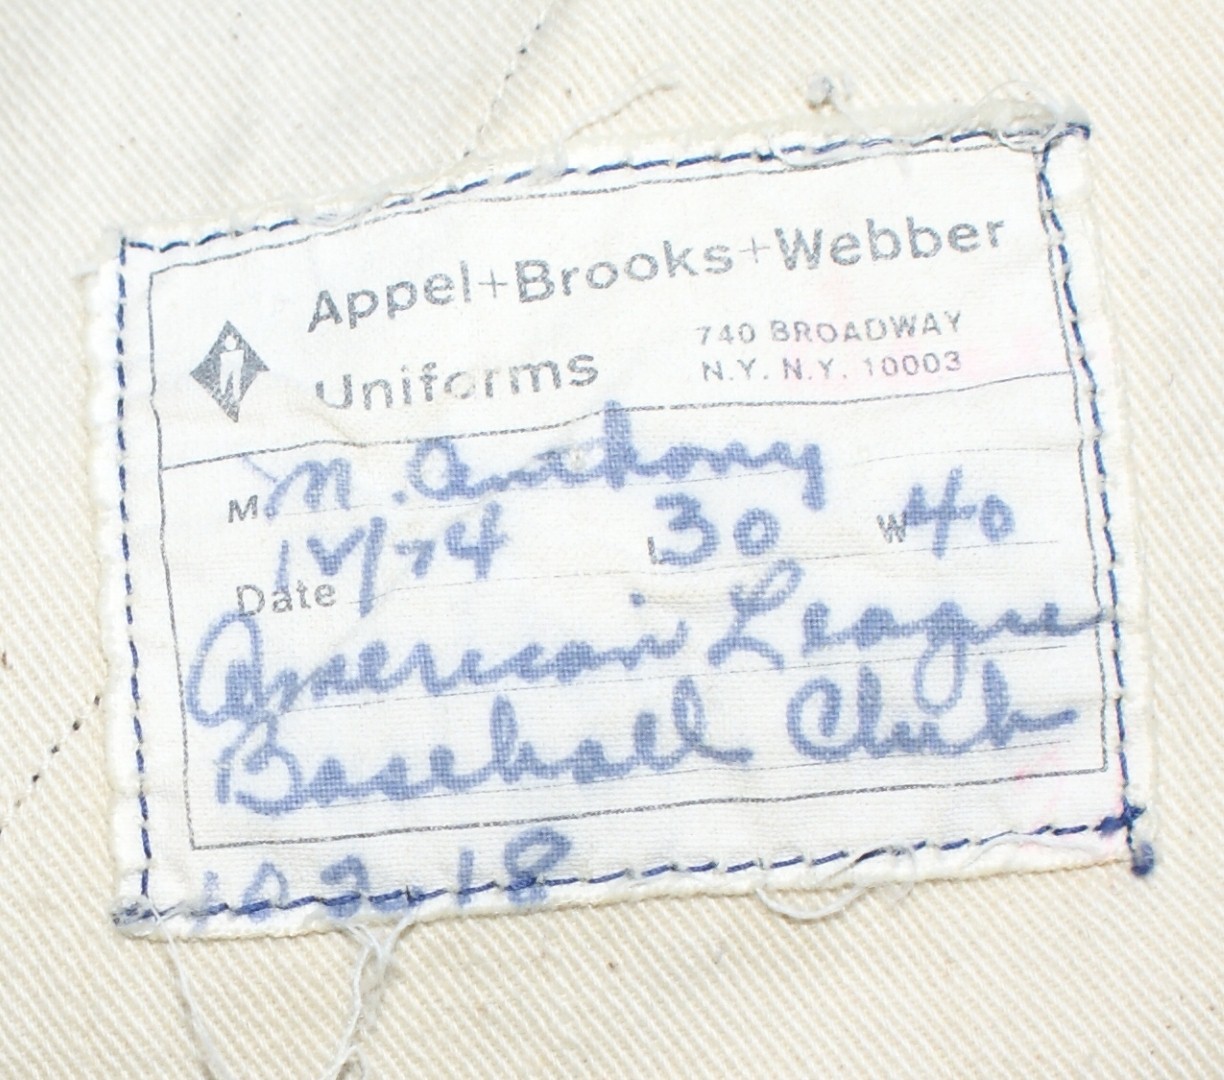 Appel+Brooks+Webber
Uniforms
740 BROADWAY
N.Y. N.Y. 10003
M. M. Anthony
Date 12/74 L 30 W 40
American League
Baseball Club